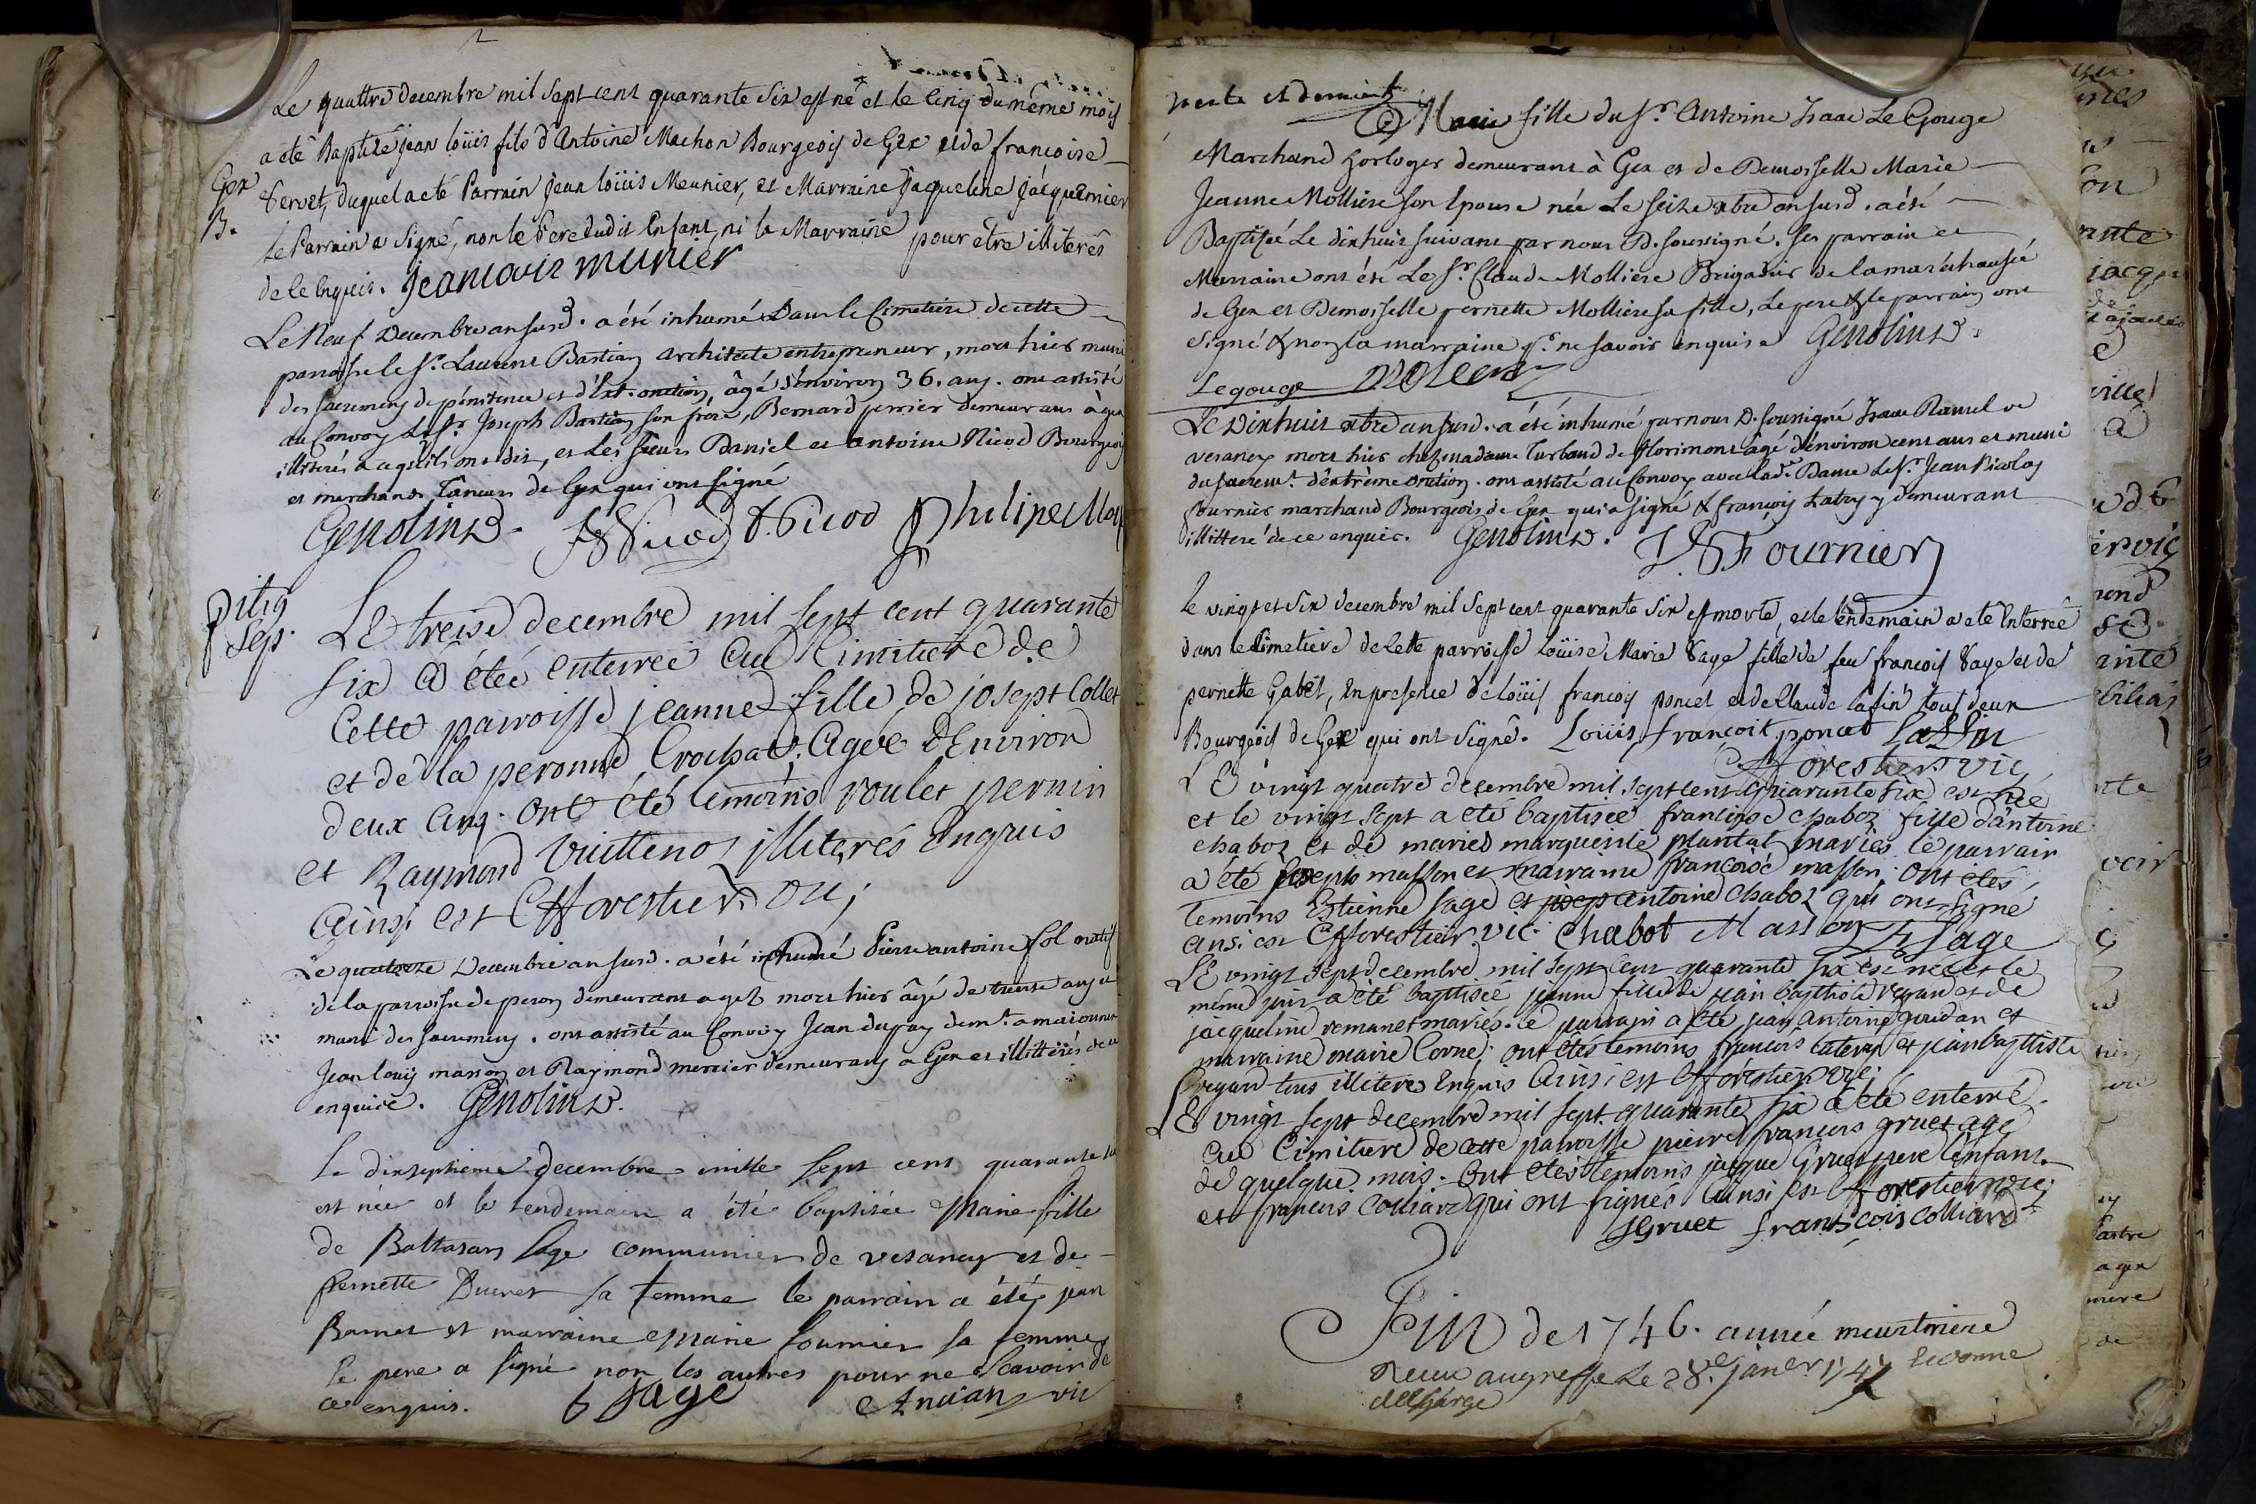 Le quattre decembre mil sept cent quarante six est né et le cinq du même mois
a eté Baptisé jean loüis fils d'Antoine Machon Bourgeois de Gex et de francoise
Gex
B.
duquel a eté Parrain jean loüis Meunier, et Marraine Jaqueline jacquemier
le Parrain a signé, non le Pere dudit Enfant, ni la Marraine pour être illiterés
de ce Enquis. jean louis munier
Le Neuf Decembre an susd. a été inhumé dans le Cimetiere de cette
paroisse le Sr. Laurent Bastian architecte entrepreneur, mort hier muni
des sacremens de pénitence et d'Ext. onction, âgé d'environ 36. ans. ont assisté
au Convoy le Sr. Joseph Bastian son frere, Bernard perrier demeurans à gex
illiterés a ce qu'ils ont dit, et les sieurs Daniel et antoine Nicod Bourgeois
et marchands Taneurs de Gex qui ont signé
Genolin D. Nicod A. Nicod Philipe
pitig
Sep.
LE treise decembre mil sept cent quarante
six a étéé enterrée au Cimitiere de
Cette parroisse jeanne fille de josept Collet
et de la peronne Crochat. Agée d'Environ
deux ans. Ont été temoins roulet pernin
et Raymond Vuillenot illiterés Enquis
Ainsi est Cfforestier vic;
Le quatorze Decembre an susd. a été inhumé Pierre antoine sol natif
de la parroisse de peron demeurant a gex mort hier âgé de trente ans et
muni des sacremens. ont assisté au Convoy Jean dupay demt. a maconnex
Jean louis masson et Raymond mercier demeurans a Gex et illittérés de ce
enquire. Genolin D.
Le dixseptieme decembre mille sept cent quarante six
est née et le lendemain a été baptisée Marie fille
de Baltasar Sage communier de vesancy et de
pernette Ducret sa femme le parrain a été jean
Barnet et marraine Marie fournier sa femme
le pere a signé non les autres pour ne scavoir de
ce enquis. b Sage Anvian vic
verte et dernier
Marie fille du Sr. Antoine Isaac Le Gouge
Marchand horloger demeurant à Gex et de Demoiselle Marie
Jeanne Molliere son Epouse née Le seize xbre an susd. a été
Baptisée Le dixhuit suivant par nous D. soussigné. ses parrain et
Marraine ont été Le Sr. Claude Molliere Brigadier de la maréchaussée
de Gex et Demoiselle pernette Molliere sa fille, Le pere & le parrain ont
signé & non la marraine pr. ne savoir enquise Genolin D.
Legouge
Le Dixhuit xbre an susd. a été inhumé par nous D. soussigné Isaac Ramel de
vesancy mort hier chez madame Turband de florimont âgé d'environ cent ans et muni
du sacremt. d'extrême onction. ont assisté au Convoy avec lade. Dame le Sr. Jean Nicolas
fournier marchand Bourgeois de Gex qui a signé & françois y demeurant
illitteré de ce enquis. Genolin D. J. N. Fournier
Le vingt et six decembre mil sept cent quarante six est morte, et le lendemain a eté Enterrée
dans le Cimetiere de cette parroisse Loüise Marie Vaye fille de feu francois Vaye et de
pernette Gabet, En presence de Loüis francois poncet et de Claude lafin tous deux
Bourgeois de Gex qui ont signé. Loüis, francoit poncet Laffin
Cfforestier vic
LE vingt quatre decembre mil sept cent quarante six est née
et le vingt sept a eté baptisée françoise chabot fille d'antoine
chabot et de marie marguerite plantat mariés le parrain
a été joseph masson et marraine francoise masson. Ont etés
temoins Estienne Sage et antoine Chabot qui ont signé
ainsi est Cfforestier vic. Chabot Masson E Sage
LE vingt sept decembre mil sept cent quarante six est née et le
meme jour a été baptisée jeanne fille de jean baptiste regard et de
jacqueline romanet mariés. le parrain a été jean antoine goudan et
marraine marie Corne. ont etés temoins francois et jean baptiste
regard tous illiteres Enquis Ainsi est Cfforestier vic.
LE vingt sept decembre mil sept quarante six a été enterré
au Cimitiere de cette parroisse pierre francois gruet agé
de quelque mois. Ont etés temoins jacque Gruet pere l'enfant
et francois Colliard qui ont signés Ainsi est Cfforestier vic;
J Gruet franscois colliard
Fin de 1746. année meurtriere
Receu au greffe Le 28.e janer. 1747